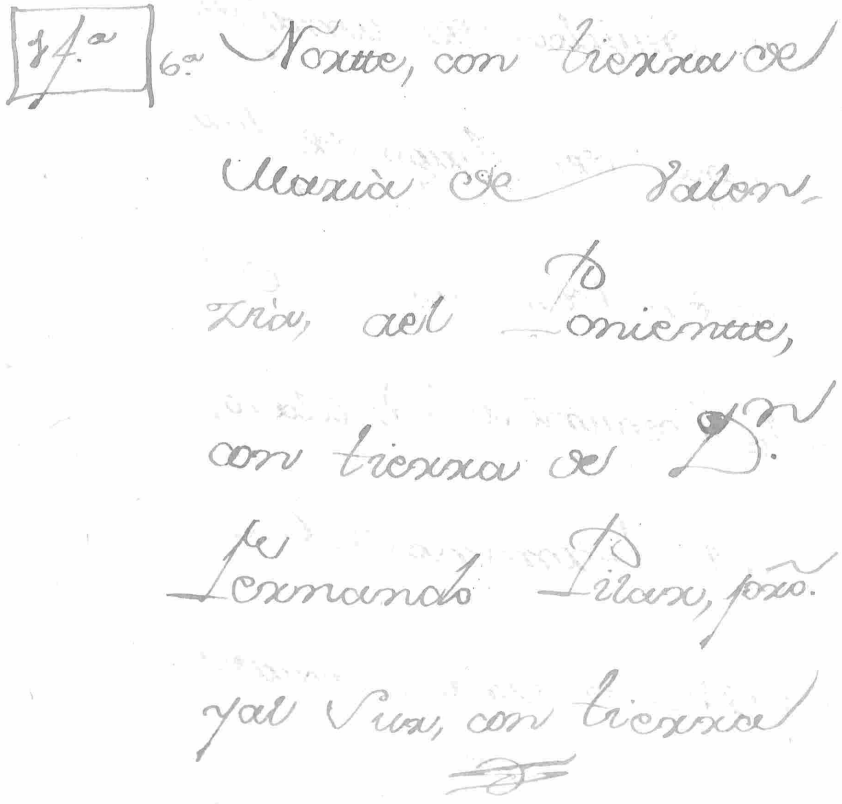 17.ª 6.ª Nortte, con tierra de
Marià de Valen-
zià, ael Ponientte,
con tierra de D.n
Fernando Pilar, pño.
yal Sur, con tierra